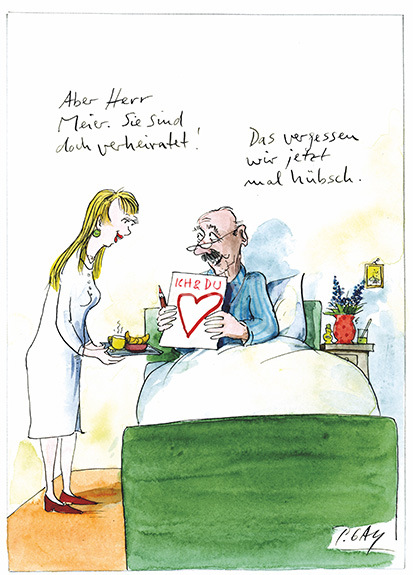 Aber Herr
Meier. Sie sind
doch verheiratet!
Das vergessen
wir jetzt
mal hübsch.
ICH & DU
P. GAY